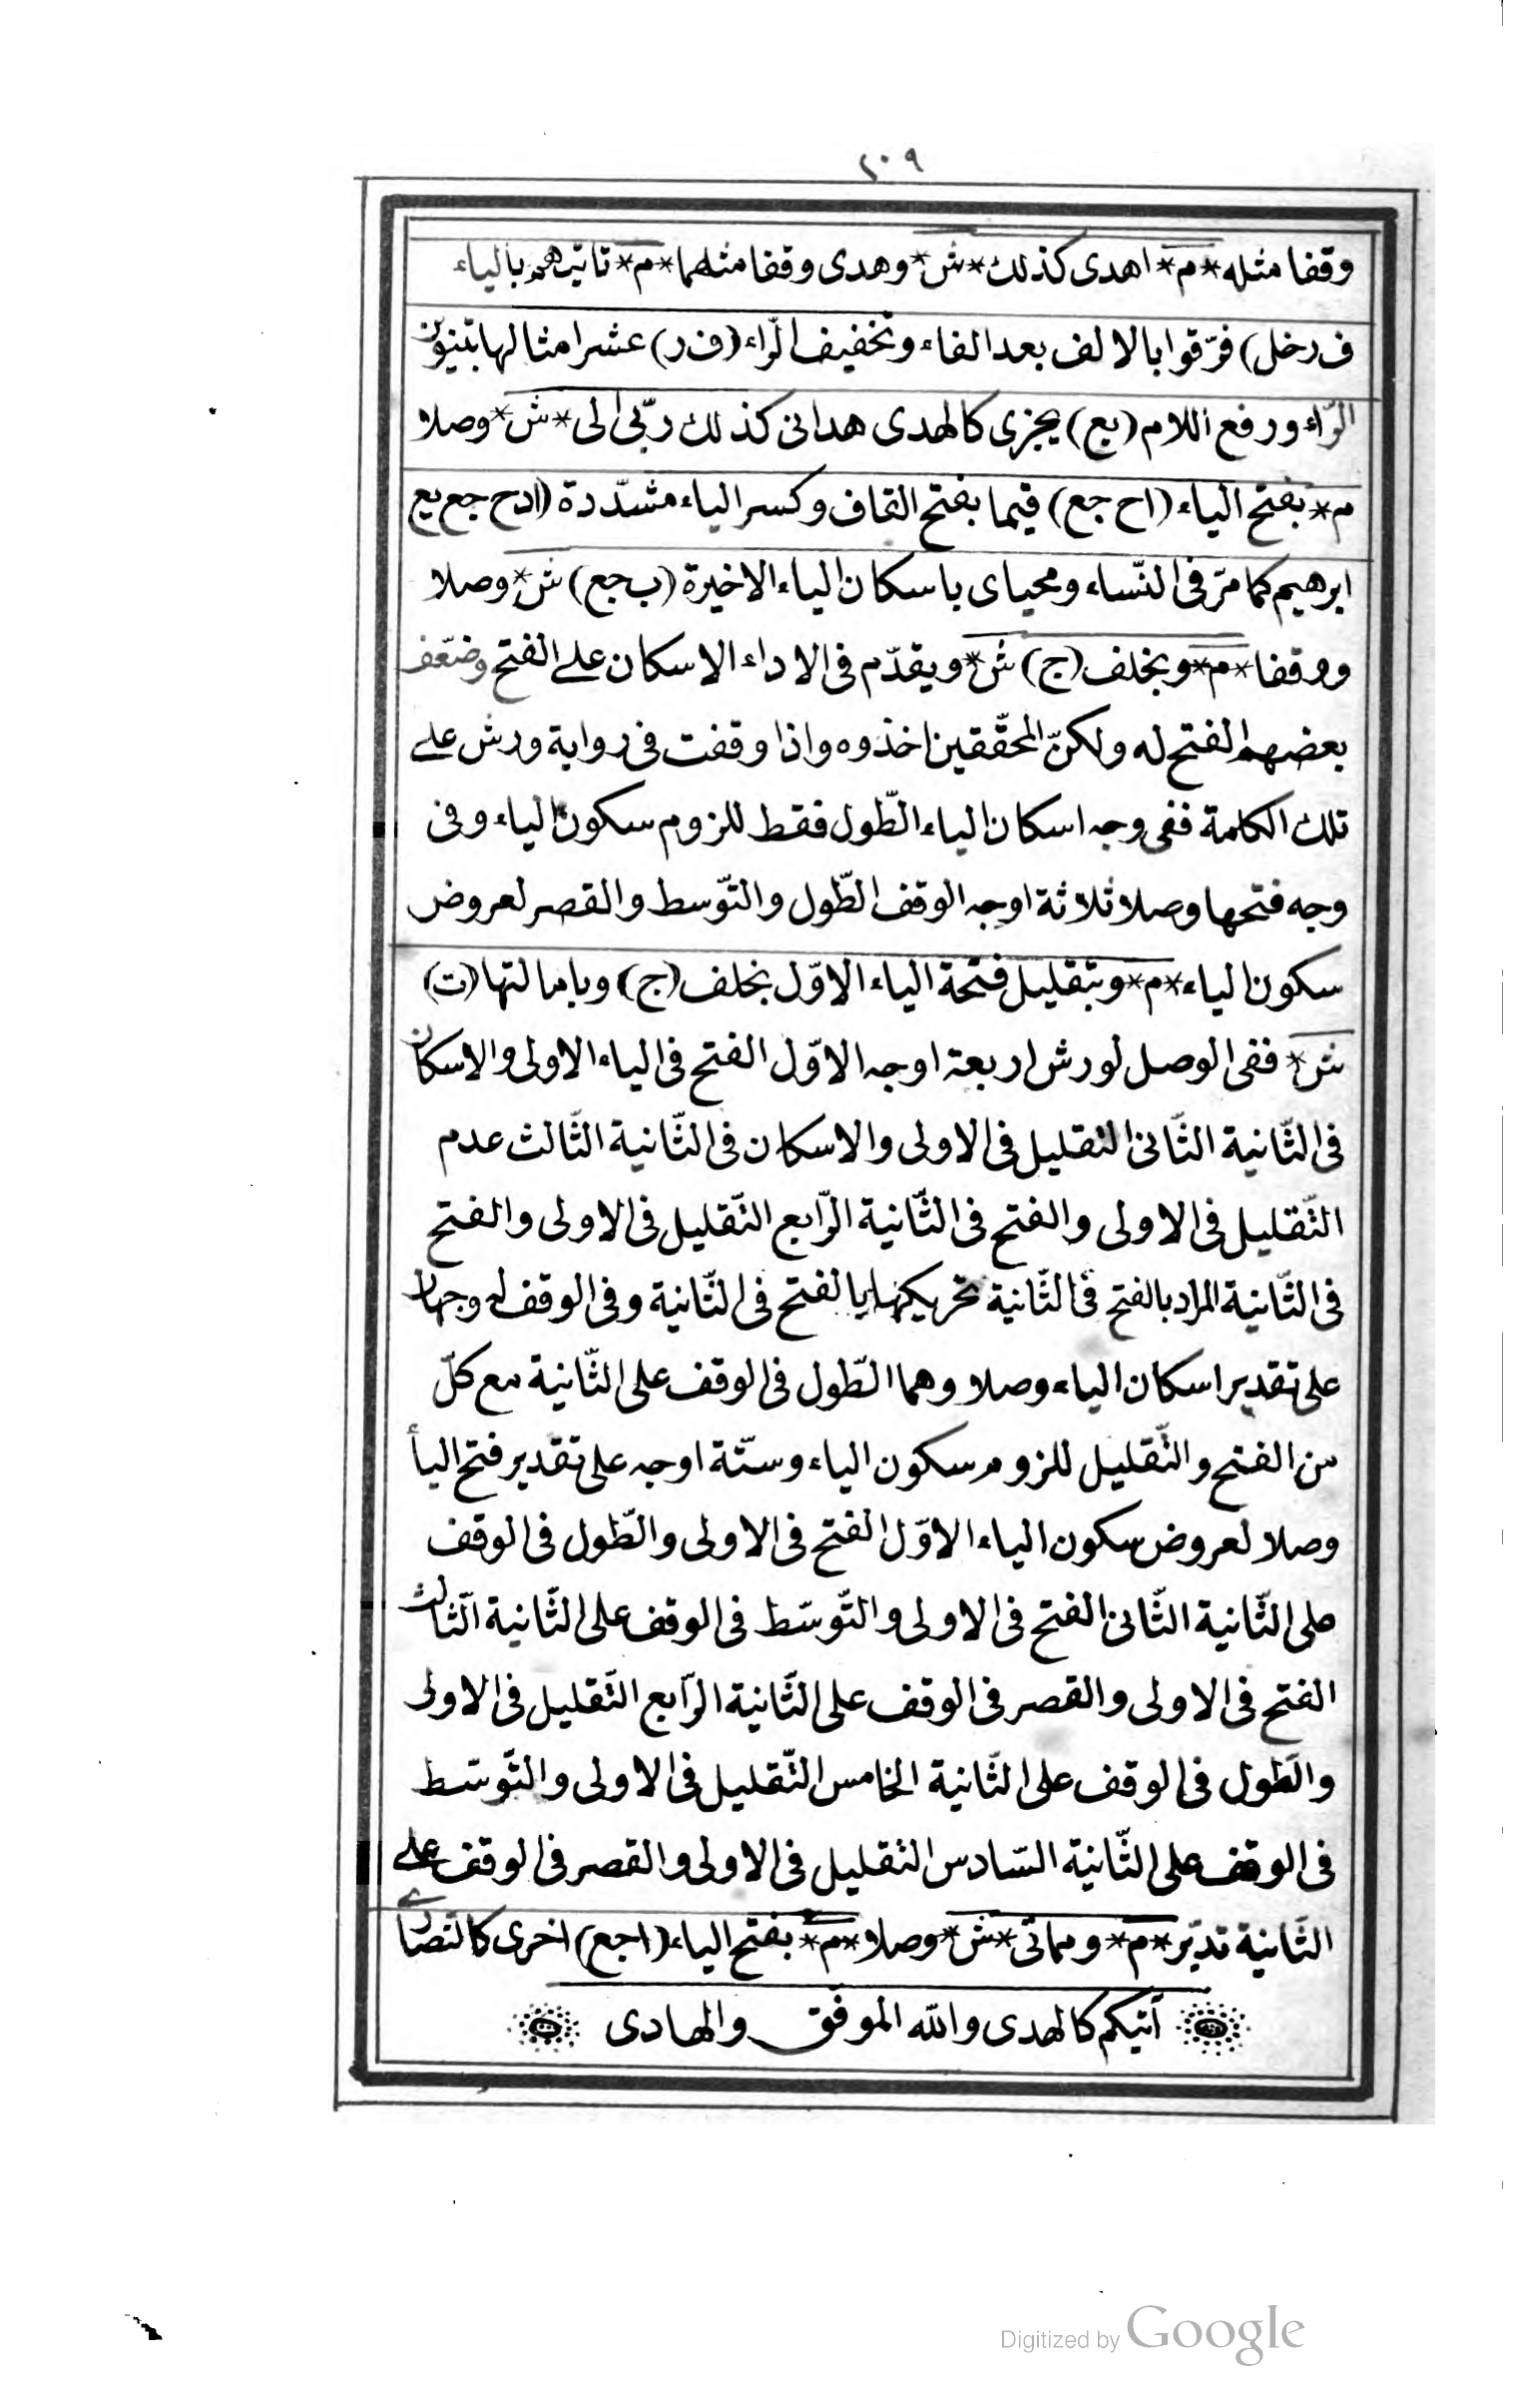 ٢٠٩
وقفا مثله * م * اهدى كذلك * ش * وهدى وقفا مثلهما * م * تاتيهم بالياء
ف رخل) فرّقوا بالالف بعد الفاء وتخفيف الرّاء (ف ر) عشر امثالها بتنوين
الرّاء ورفع اللام (يع) يجزى كالهدى هدانى كذلك ربّى الى * ش * وصلا
م * بفتح الياء (اح جع) قيما بفتح القاف وكسر الياء مشدّدة (ادح جع يع
ابرهيم كما مرّ فى النّساء ومحياى باسكان الياء الاخيرة (ب جع) ش * وصلا
ووقفا * م * وبخلف (ج) ش * ويقدّم فى الاداء الاسكان على الفتح وضعّف
بعضهم الفتح له ولكنّ المحقّقين اخذوه واذا وقفت فى رواية ورش على
تلك الكلمة ففى وجه اسكان الياء الطّول فقط للزوم سكون الياء وفى
وجه فتحها وصلا ثلاثة اوجه الوقف الطّول والتّوسط والقصر لعروض
سكون الياء * م * وبتقليل فتحة الياء الاوّل بخلف (ج) وبامالتها (ت)
ش * ففى الوصل لورش اربعة اوجه الاوّل الفتح فى الياء الاولى والاسكان
فى الثّانية الثّانى التقليل فى الاولى والاسكان فى الثّانية الثّالث عدم
التّقليل فى الاولى والفتح فى الثّانية الرّابع التّقليل فى الاولى والفتح
فى الثّانية المراد بالفتح فى الثّانية تحريكها بالفتح فى الثّانية وفى الوقف له وجهان
على تقدير اسكان الياء وصلا وهما الطّول فى الوقف على الثّانية مع كلّ
من الفتح والتّقليل للزوم سكون الياء وستّة اوجه على تقدير فتح اليأ
وصلا لعروض سكون الياء الاوّل الفتح فى الاولى والطّول فى الوقف
على الثّانية الثّانى الفتح فى الاولى والتّوسّط فى الوقف على الثّانية الثّالث
الفتح فى الاولى والقصر فى الوقف على الثّانية الرّابع التّقليل فى الاولى
والطّول فى الوقف على الثّانية الخامس التّقليل فى الاولى والتّوسّط
فى الوقف على الثّانية السّادس التقليل فى الاولى والقصر فى الوقف على
الثّانية تدبّر * م * ومماتى * ش * وصلا * م * بفتح الياء (اجع) اخرى كالنّصارى
آتيكم كالهدى والله الموفّق والهادى
Digitized by Google